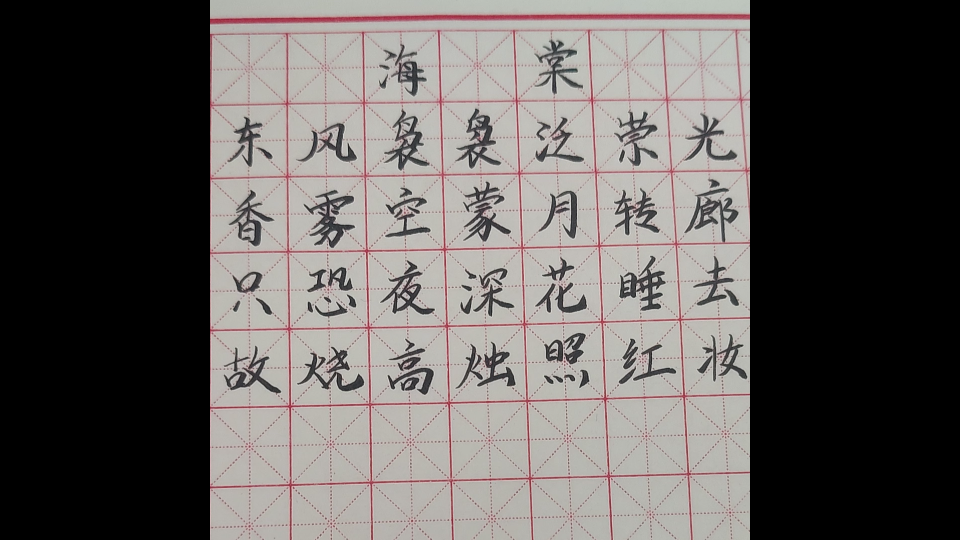 海棠
东风袅袅泛崇光
香雾空蒙月转廊
只恐夜深花睡去
故烧高烛照红妆